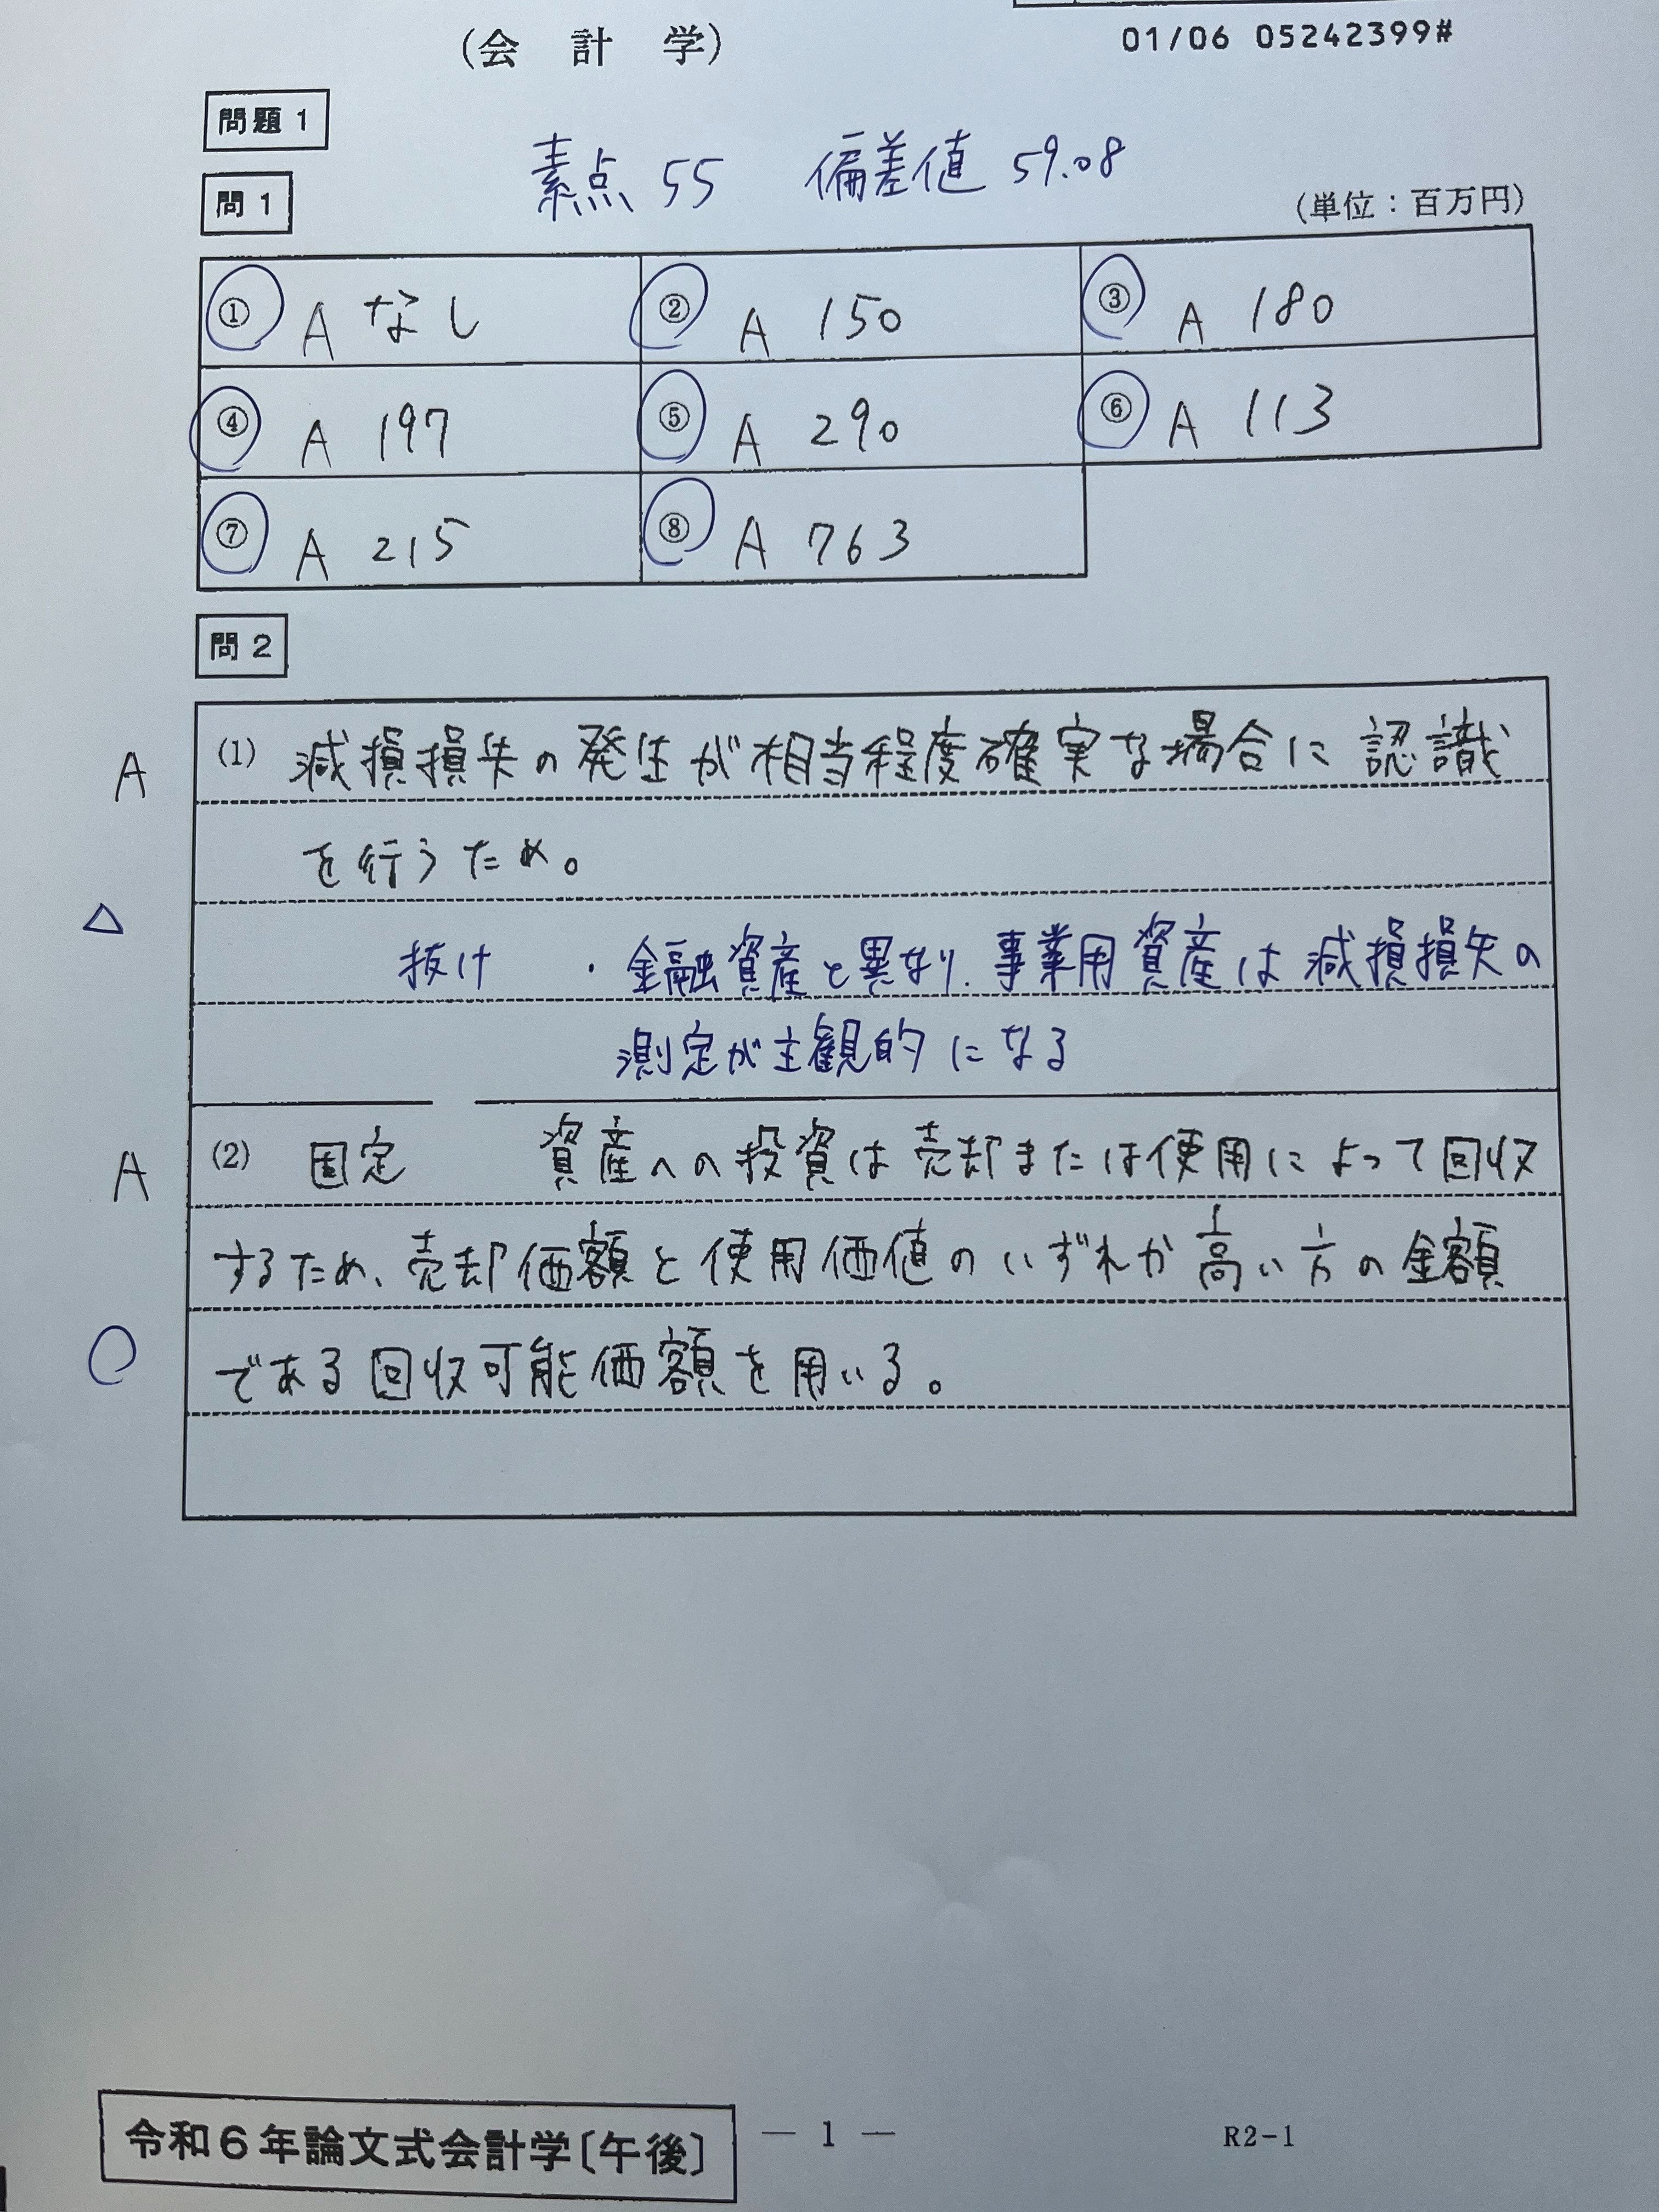 (会 計 学)
01/06 05242399#
問題1
素点 55 偏差値 59.08
問1
(単位:百万円)
① A なし ② A 150 ③ A 180
④ A 197 ⑤ A 290 ⑥ A 113
⑦ A 215 ⑧ A 763
問2
A (1) 減損損失の発生が相当程度確実な場合に認識
を行うため。
△ 抜け ・金融資産と異なり、事業用資産は減損損失の
測定が主観的になる
A (2) 固定 資産への投資は売却または使用によって回収
するため、売却価額と使用価値のいずれか高い方の金額
○ である回収可能価額を用いる。
令和6年論文式会計学〔午後〕 — 1 — R2-1